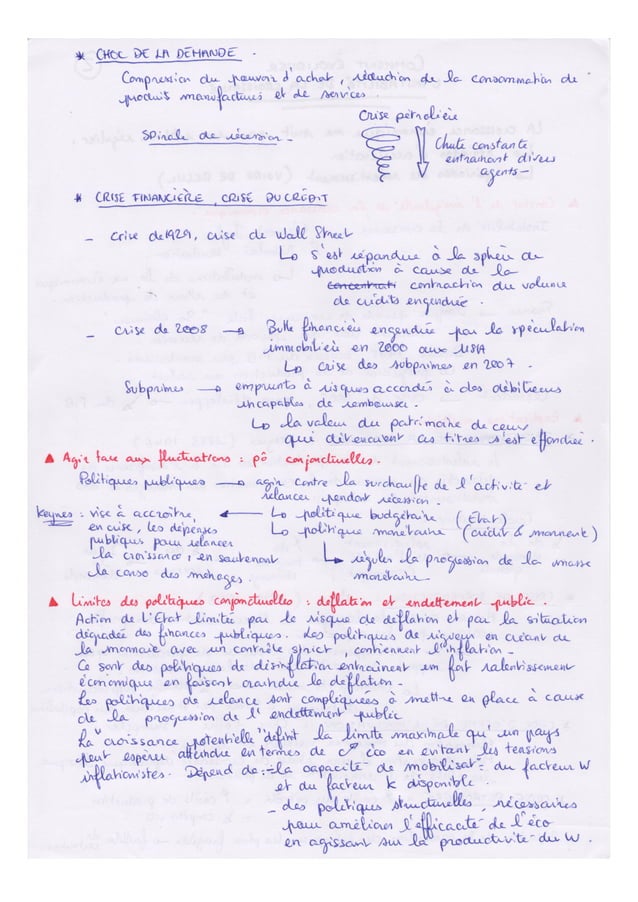 * CHOC DE LA DEMANDE.
Compression du pouvoir d'achat, réduction de la consommation de
produits manufacturés et de services.
Crise pétrolière
Spirale de récession -
Chute constante
entrainant divers
agents -
* CRISE FINANCIÈRE, CRISE DU CRÉDIT
- Crise de 1929, crise de Wall Street
↳ s'est répandue à la sphère de
production à cause de la
contraction du volume
de crédits engendrée.
- Crise de 2008 → Bulle financière engendrée par la spéculation
immobilière en 2000 aux USA
↳ crise des subprimes en 2007.
Subprimes → emprunts à risques accordés à des débiteurs
incapables de rembourser.
↳ la valeur du patrimoine de ceux
qui détenaient ces titres s'est effondrée.
▲ Agir face aux fluctuations : pô conjoncturelles.
Politiques publiques → agir contre la surchauffe de l'activité et
relancer pendant récession.
Keynes : vise à accroître, ← ↳ politique budgétaire (Etat)
en crise, les dépenses ↳ politique monétaire (crédit & monnaie)
publiques pour relancer
la croissance, en soutenant ↳ réguler la progression de la masse
la conso des ménages. monétaire
▲ Limites des politiques conjoncturelles : déflation et endettement public.
Action de l'Etat limitée par le risque de déflation et par la situation
dégradée des finances publiques. Les politiques de rigueur en créant de
la monnaie avec un contrôle strict, contiennent l'inflation -
Ce sont des politiques de désinflation entraînent en fait ralentissement
économique en faisant craindre la déflation -
Les politiques de relance sont compliquées à mettre en place à cause
de la progression de l'endettement public
La "croissance potentielle" définit la limite maximale qu'un pays
peut espérer atteindre en termes de c° éco en évitant les tensions
inflationistes. Dépend de : - la capacité de mobilisat° du facteur W
et du facteur K disponible
- des politiques structurelles, nécessaires
pour améliorer l'efficacité de l'éco
en agissant sur la productivité du W.